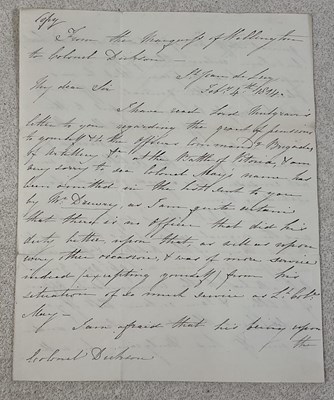 Copy
From the Marquess of Wellington
to Colonel Dickson —
St Jean de Luz
Feby 4th 1814.
My dear Sir
I have read Lord Mulgrave's
letter to you regarding the grant of pensions
to yourself & to the officers commandg Brigades
of Artillery &c at the Battle of Vitoria, & am
very sorry to see Colonel May's name has
been omitted in the list sent to you
by Mr. as I am quite certain
that there is no Officer that did his
duty better upon that, as well as upon
every other occasion, & was of more service
indeed (excepting yourself) from his
situation of so much service as Lt. Coll.
May —
I am afraid that his being upon
the
Colonel Dickson